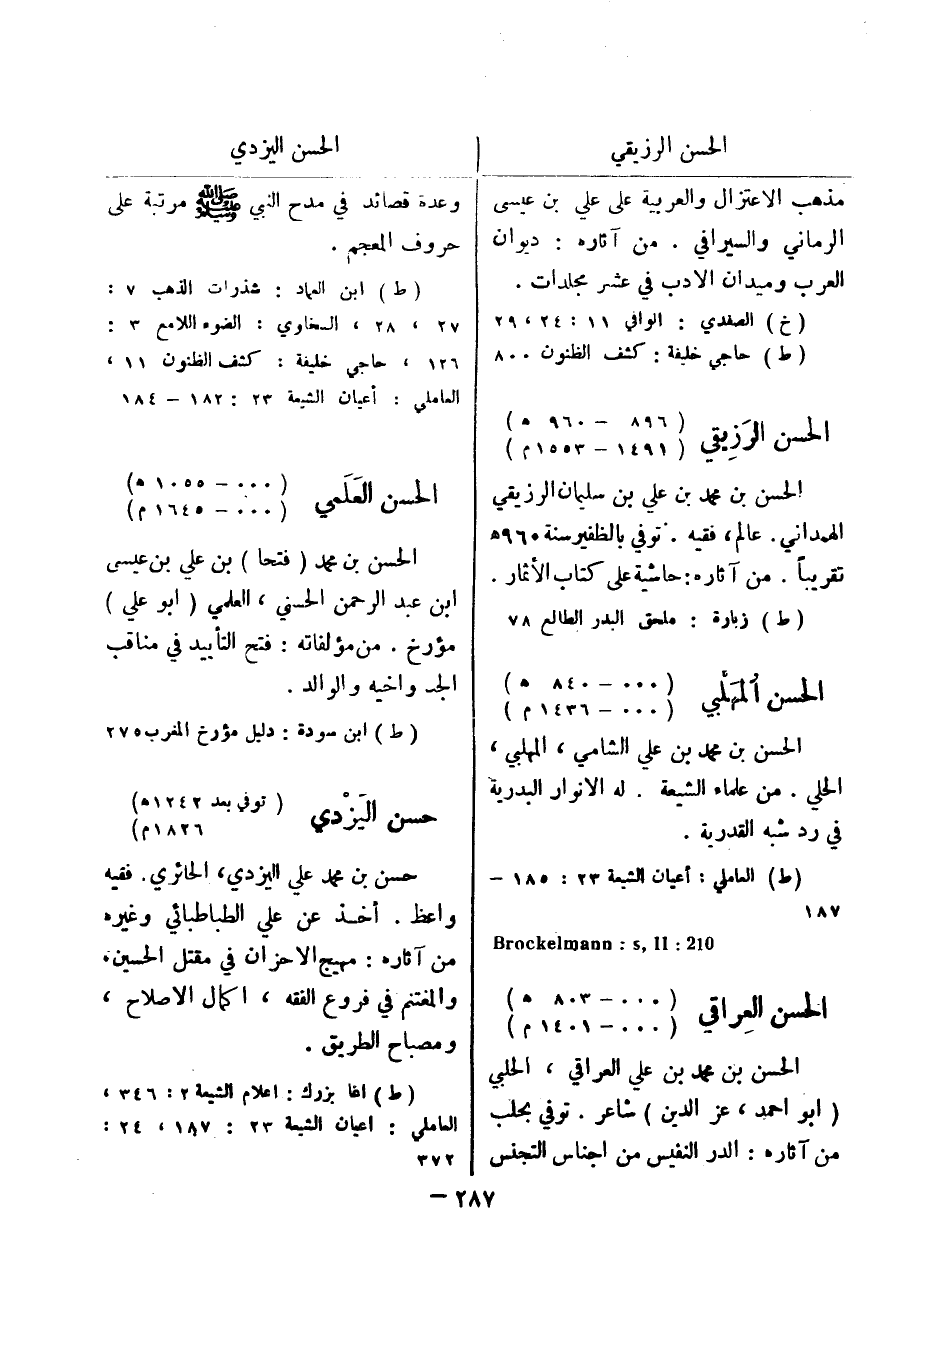 الحسن الرزيقي
مذهب الاعتزال والعربية على علي بن عيسى
الرماني والسيرافي . من آثاره : ديوان
العرب وميدان الادب في عشر مجلدات .
(خ) الصفدي : الوافي ١١ : ٢٤ ، ٢٩
(ط) حاجي خليفة : كشف الظنون ٨٠٠
الحسن الرَزِيقي
( ٨٩٦ - ٩٦٠ ه )
( ١٤٩١ - ١٥٥٣ م )
الحسن بن محمد بن علي بن سليمان الرزيقي
الهمداني. عالم، فقيه . توفي بالظفير سنة ٩٦٠ه
تقريباً . من آثاره: حاشية على كتاب الأثمار .
(ط) زبارة : ملحق البدر الطالع ٧٨
الحسن المُهَلَّبي
( ٠٠٠ - ٨٤٠ ه )
( ٠٠٠ - ١٤٣٦ م )
الحسن بن محمد بن علي الشامي ، المهلبي ،
الحلي . من علماء الشيعة . له الانوار البدرية
في رد شبه القدرية .
(ط) العاملي : أعيان الشيعة ٢٣ : ١٨٥ -
١٨٧
Brockelmann : s, II : 210
الحسن العِراقي
( ٠٠٠ - ٨٠٣ ه )
( ٠٠٠ - ١٤٠١ م )
الحسن بن محمد بن علي العراقي ، الحلبي
( ابو احمد ، عز الدين ) شاعر . توفي بحلب
من آثاره : الدر النفيس من اجناس التجنس
الحسن اليزدي
وعدة قصائد في مدح النبي ﷺ مرتبة على
حروف المعجم .
(ط) ابن العماد : شذرات الذهب ٧ :
٢٧ ، ٢٨ ، السخاوي : الضوء اللامع ٣ :
١٢٦ ، حاجي خليفة : كشف الظنون ١١ ،
العاملي : أعيان الشيعة ٢٣ : ١٨٢ - ١٨٤
الحسن العَلَمي
( ٠٠٠ - ١٠٥٥ ه )
( ٠٠٠ - ١٦٤٥ م )
الحسن بن محمد ( فتحا ) بن علي بن عيسى
ابن عبد الرحمن الحسني ، العلمي ( ابو علي )
مؤرخ . من مؤلفاته : فتح التأييد في مناقب
الجد واخيه والوالد .
(ط) ابن سودة : دليل مؤرخ المغرب ٢٧٥
حسن اليَزْدي
( توفي بعد ١٢٤٢ه )
١٨٢٦م)
حسن بن محمد علي اليزدي، الحائري. فقيه
واعظ . أخذ عن علي الطباطبائي وغيره
من آثاره : مهيج الاحزان في مقتل الحسين،
والمغتنم في فروع الفقه ، اكمال الاصلاح ،
ومصباح الطريق .
(ط) اغا بزرك : اعلام الشيعة ٢ : ٣٤٦ ،
العاملي : اعيان الشيعة ٢٣ : ١٨٧ ، ٢٤ :
٣٧٢
٢٨٧ -